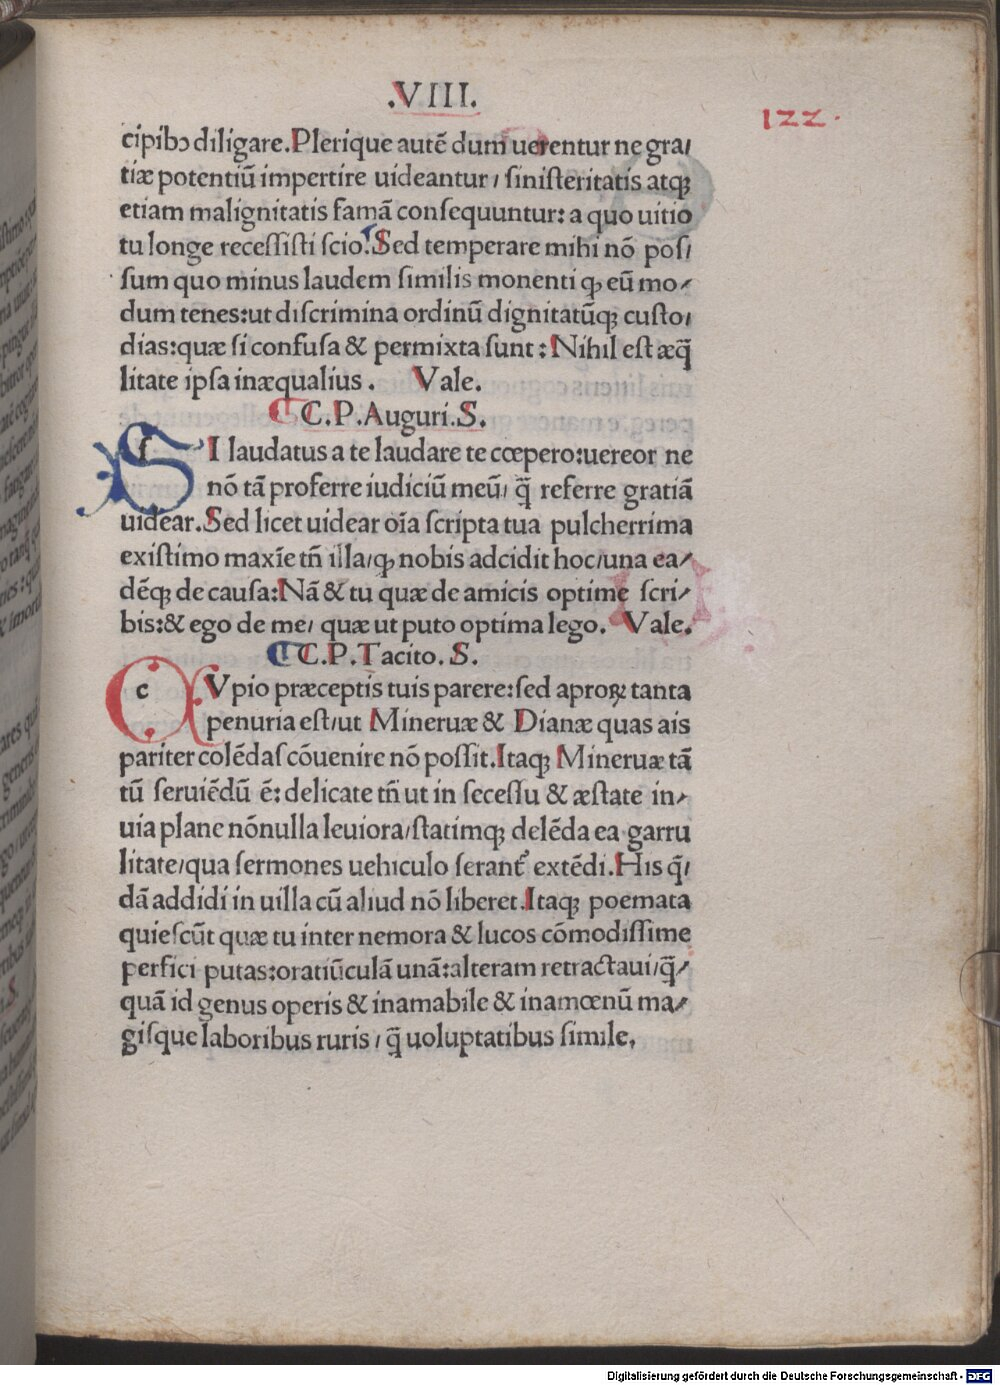 .VIII.
122.
cipibꝰ diligare.Plerique autē dum uerentur ne gra/
tiæ potentiū impertire uideantur/ ſiniſteritatis atqꝫ
etiam malignitatis famā conſequuntur: a quo uitio
tu longe receſſiſti ſcio. Sed temperare mihi nō poſ/
ſum quo minus laudem ſimilis monenti qꝫ eū mo/
dum tenes:ut diſcrimina ordinū dignitatūqꝫ cuſto/
dias:quæ ſi confuſa & permixta ſunt: Nihil eſt æq̄
litate ipſa inæqualius. Vale.
C.P.Auguri.S.
SI laudatus a te laudare te cœpero:uereor ne
nō tā proferre iudiciū meū/ q̄ referre gratiā
uidear.Sed licet uidear oīa ſcripta tua pulcherrima
exiſtimo maxīe tñ illa/qꝫ nobis adcidit hoc/una ea/
dēqꝫ de cauſa:Nā & tu quæ de amicis optime ſcri/
bis:& ego de me/ quæ ut puto optima lego. Vale.
C.P.Tacito.S.
cVpio præceptis tuis parere:ſed aproꝝ tanta
penuria eſt/ut Mineruæ & Dianæ quas ais
pariter colēdaſ cōuenire nō poſſit.Itaqꝫ Mineruæ tā
tū ſeruiēdū ē: delicate tñ ut in ſeceſſu & æſtate in/
uia plane nōnulla leuiora/ſtatimqꝫ delēda ea garru
litate/qua ſermones uehiculo ſerant᷑ extēdi.His q̄/
dā addidi in uilla cū aliud nō liberet.Itaqꝫ poemata
quieſcūt quæ tu inter nemora & lucos cōmodiſſime
perfici putas:oratiūculā unā:alteram retractaui/q̄/
quā id genus operis & inamabile & inamœnū ma/
giſque laboribus ruris/ q̄ uoluptatibus ſimile,
Digitalisierung gefördert durch die Deutsche Forschungsgemeinschaft - DFG